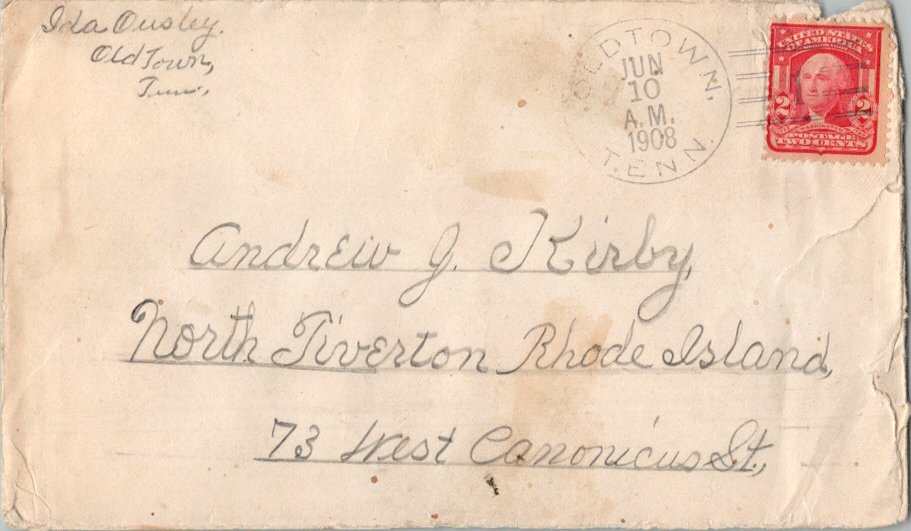 Ida Ousley.
Old Town,
Tenn.
OLDTOWN,
JUN
10
A.M.
1908
TENN.
UNITED STATES
OF AMERICA
2 2
POSTAGE
TWO CENTS
Andrew J. Kirby,
North Tiverton Rhode Island,
73 West Canonicus St.,